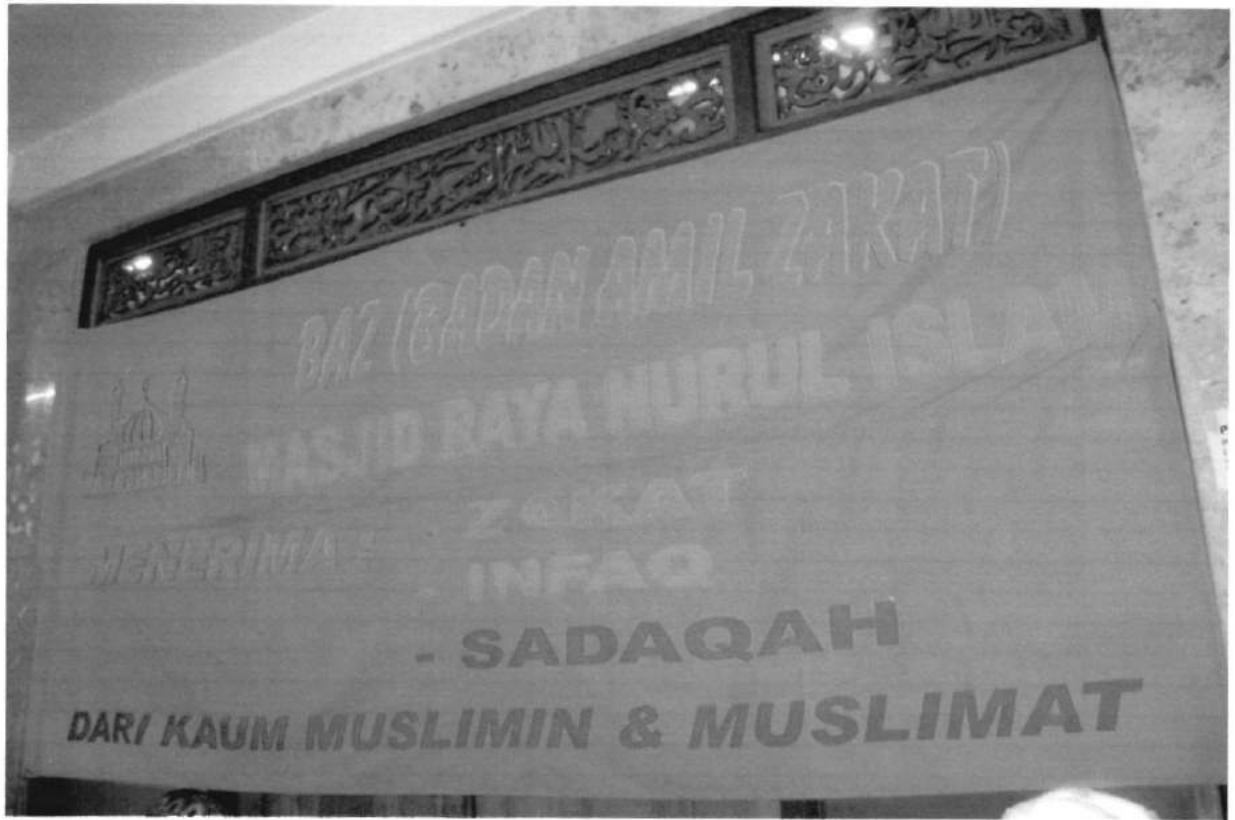 BAZ (BADAN AMIL ZAKAT)
MASJID RAYA NURUL ISLAM
MENERIMA : - ZAKAT
- INFAQ
- SADAQAH
DARI KAUM MUSLIMIN & MUSLIMAT